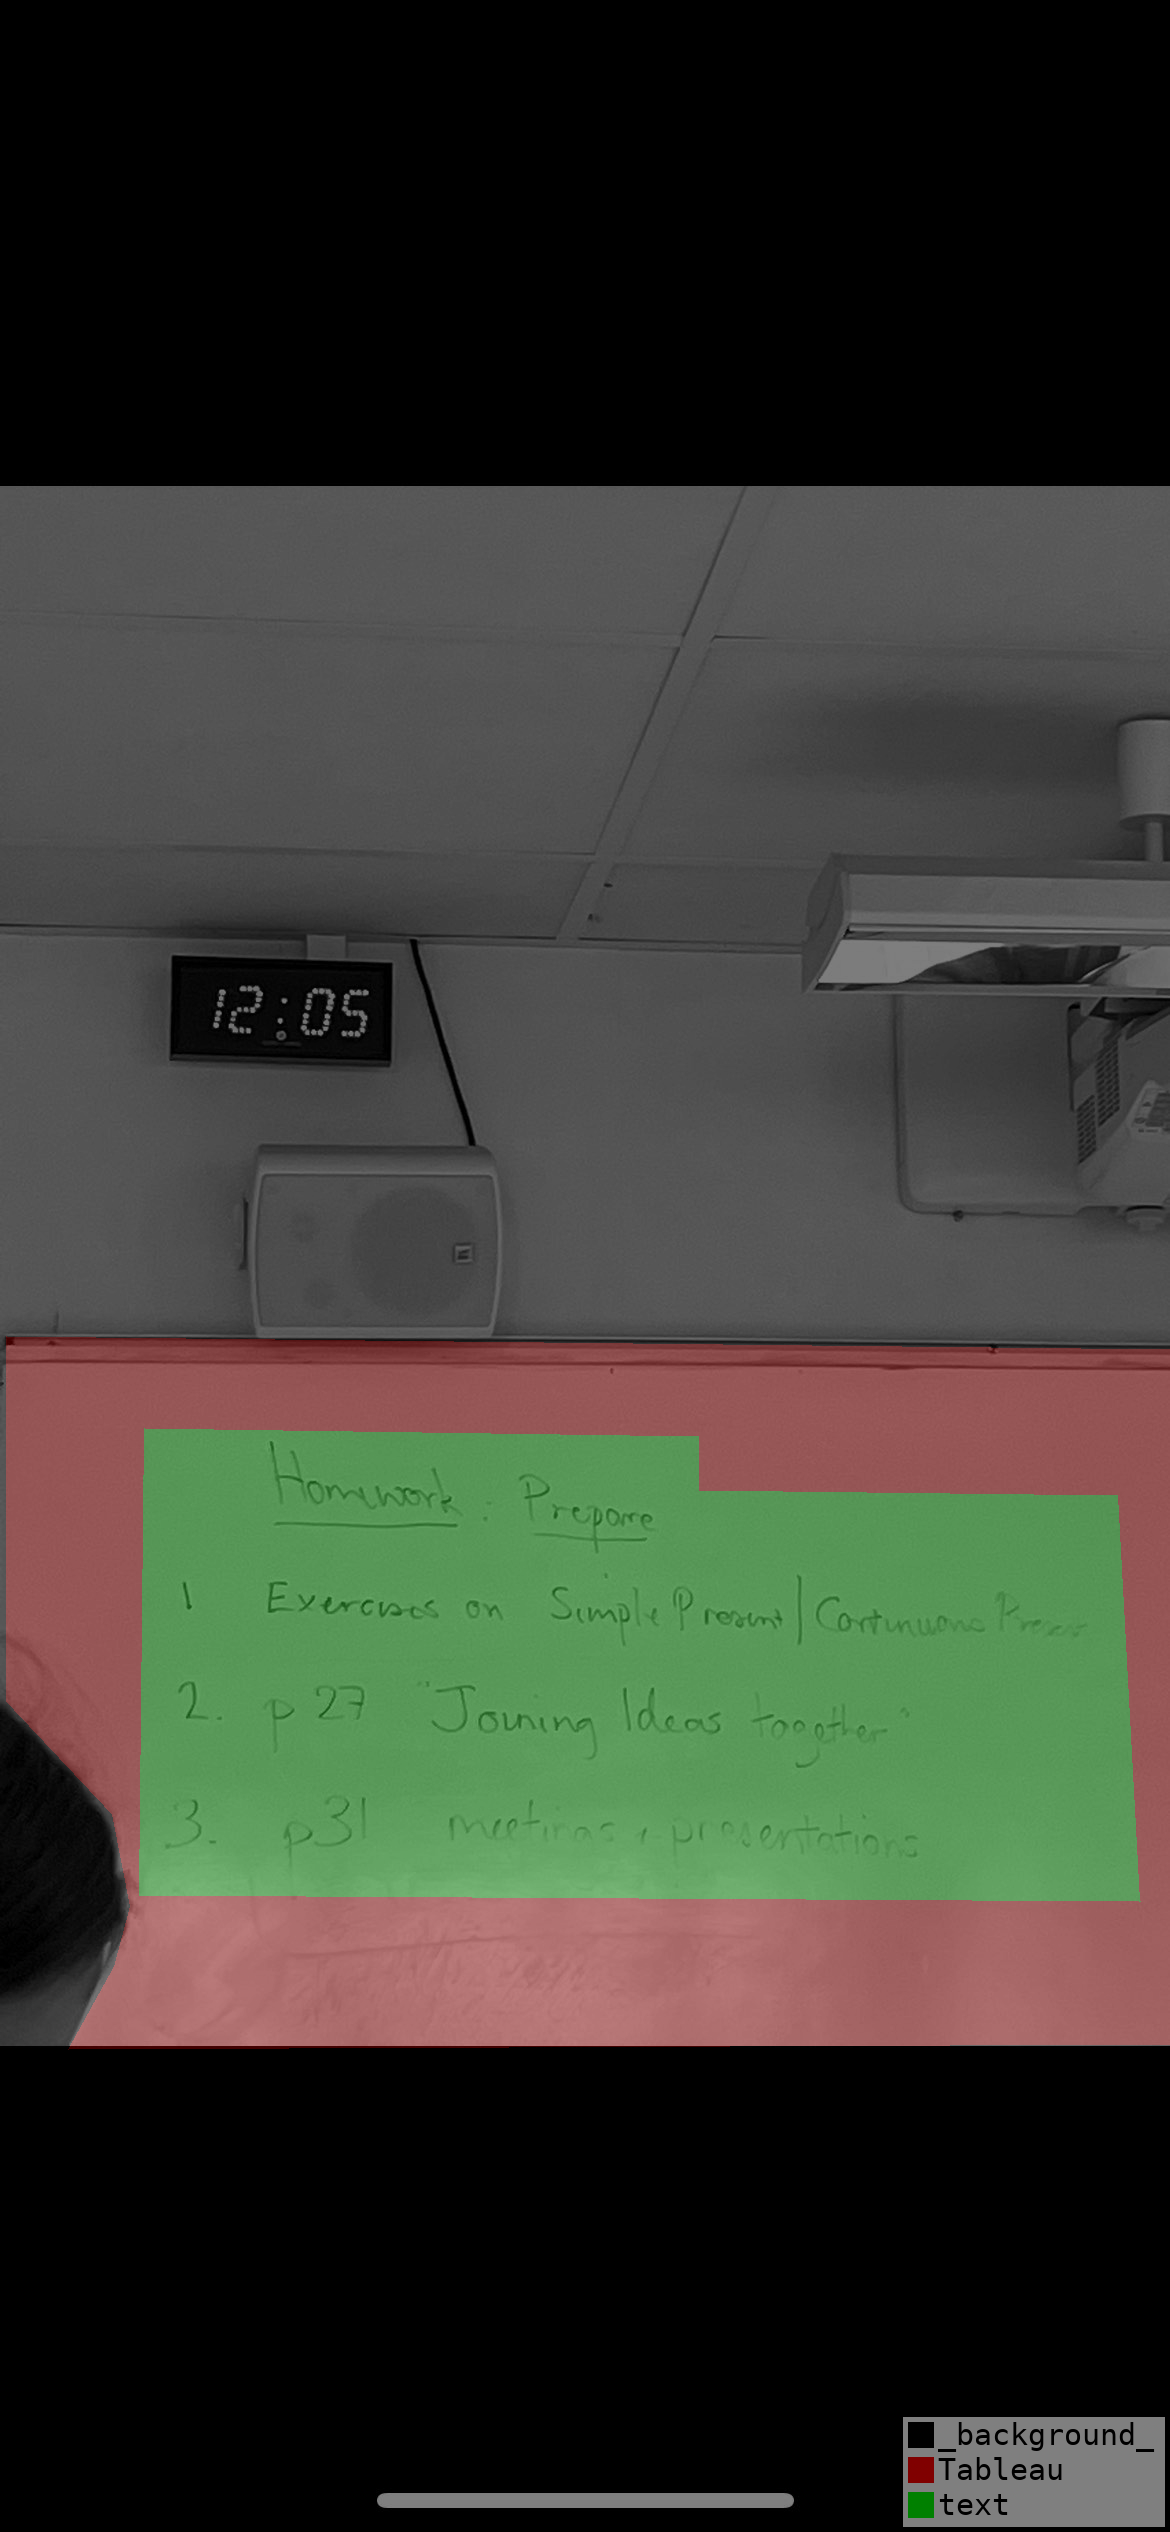 12:05
Homework : Prepare
1 Exercises on Simple Present / Continuous Present
2. p 27 "Joining Ideas together"
3. p31 meetings + presentations
_background_
Tableau
text